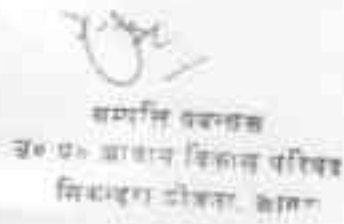 सम्पत्ति प्रबन्धक
उ० प्र० आवास विकास परिषद
सिकन्दरा योजना, आगरा